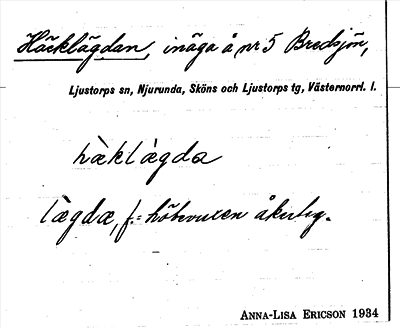 Häcklägdan, inäga å nr 5 Bredsjön,
Ljustorps sn, Njurunda, Sköns och Ljustorps tg, Västernorrl. l.
hàklàgda
làgda, f. = höbevuxen åkerteg.
ANNA-LISA ERICSON 1934